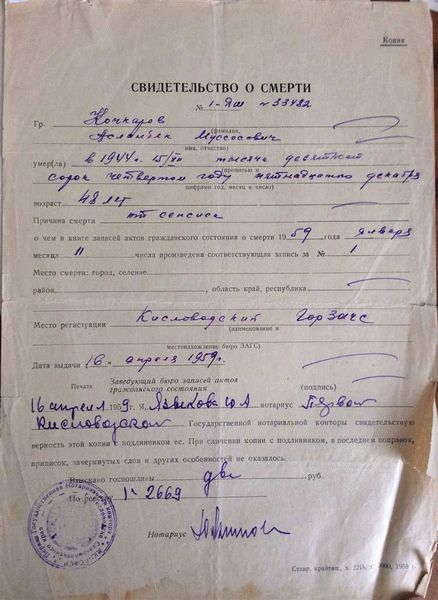 Копия
СВИДЕТЕЛЬСТВО О СМЕРТИ
№ 1-ЯШ № 33482
Гр. Кочкаров
(фамилия,
Асланбек Муссосович
имя, отчество)
умер(ла) в 1944 г. 15/XII тысяча девятсот
(прописью и
сорок четвертом году пятнадцатго декабря
цифрами год, месяц и число)
возраст 48 лет
Причина смерти от сепсиса
о чем в книге записей актов гражданского состояния о смерти 1959 года января
месяца 11 числа произведена соответствующая запись за № 1
Место смерти: город, селение
район, область край, республика
Место регистрации Кисловодский ГорЗагс
(наименование и
местонахождение бюро ЗАГС)
Дата выдачи 16 апреля 1959 г.
Заведующий бюро записей актов
Печать гражданского состояния (подпись)
16 апреля 1959 Я, Языкова Ю А нотариус Первой
Кисловодской Государственной нотариальной конторы свидетельствую
верность этой копии с подлинником ее. При сличении копии с подлинником, в последнем поправок,
приписок, зачеркнутых слов и других особенностей не оказалось.
Взыскано госпошлины две руб.
По реестру 1-2669
Нотариус
Ставр. крайтип., з. 1958 г.